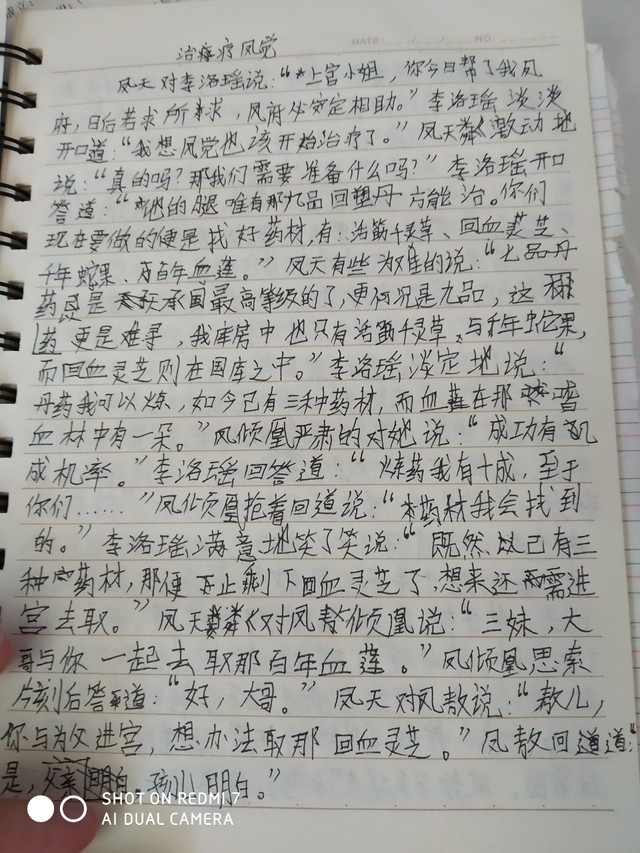 治疗凤觉
凤天对李洛瑶说：“上宫小姐，你今日帮了我凤
府，日后若求所求，凤府必定相助。”李洛瑶淡淡
开口道：“我想凤觉也该开始治疗了。”凤天粦激动地
说：“真的吗？那我们需要准备什么吗？”李洛瑶开口
答道：“他的腿唯有那九品回塑丹方能治。你们
现在要做的便是找好药材，有：活筋千灵草、回血灵芝、
千年蛇果、百年血莲。”凤天有些为难的说：“七品丹
药已是承国最高等级的了，更何况是九品，这
药更是难寻，我库房中也只有活筋千灵草、与千年蛇果，
而回血灵芝则在国库之中。”李洛瑶淡定地说：“
丹药我可以炼，如今已有三种药材，而血莲在那嗜
血林中有一朵。”凤倾凰严肃的对她说：“成功有几
成机率。”李洛瑶回答道：“炼药我有十成，至于
你们……”凤倾凰抢着回道说：“药材我会找到
的。”李洛瑶满意地笑了笑说：“既然已有三
种药材，那便只剩下回血灵芝了，想来还需进
宫去取。”凤天粦对凤倾凰说：“三妹，大
哥与你一起去取那百年血莲。”凤倾凰思索
片刻后答道：“好，大哥。”凤天对凤敖说：“敖儿，
你与为父进宫，想办法取那回血灵芝。”凤敖回道道：“
是，孩儿明白。”
SHOT ON REDMI 7
AI DUAL CAMERA